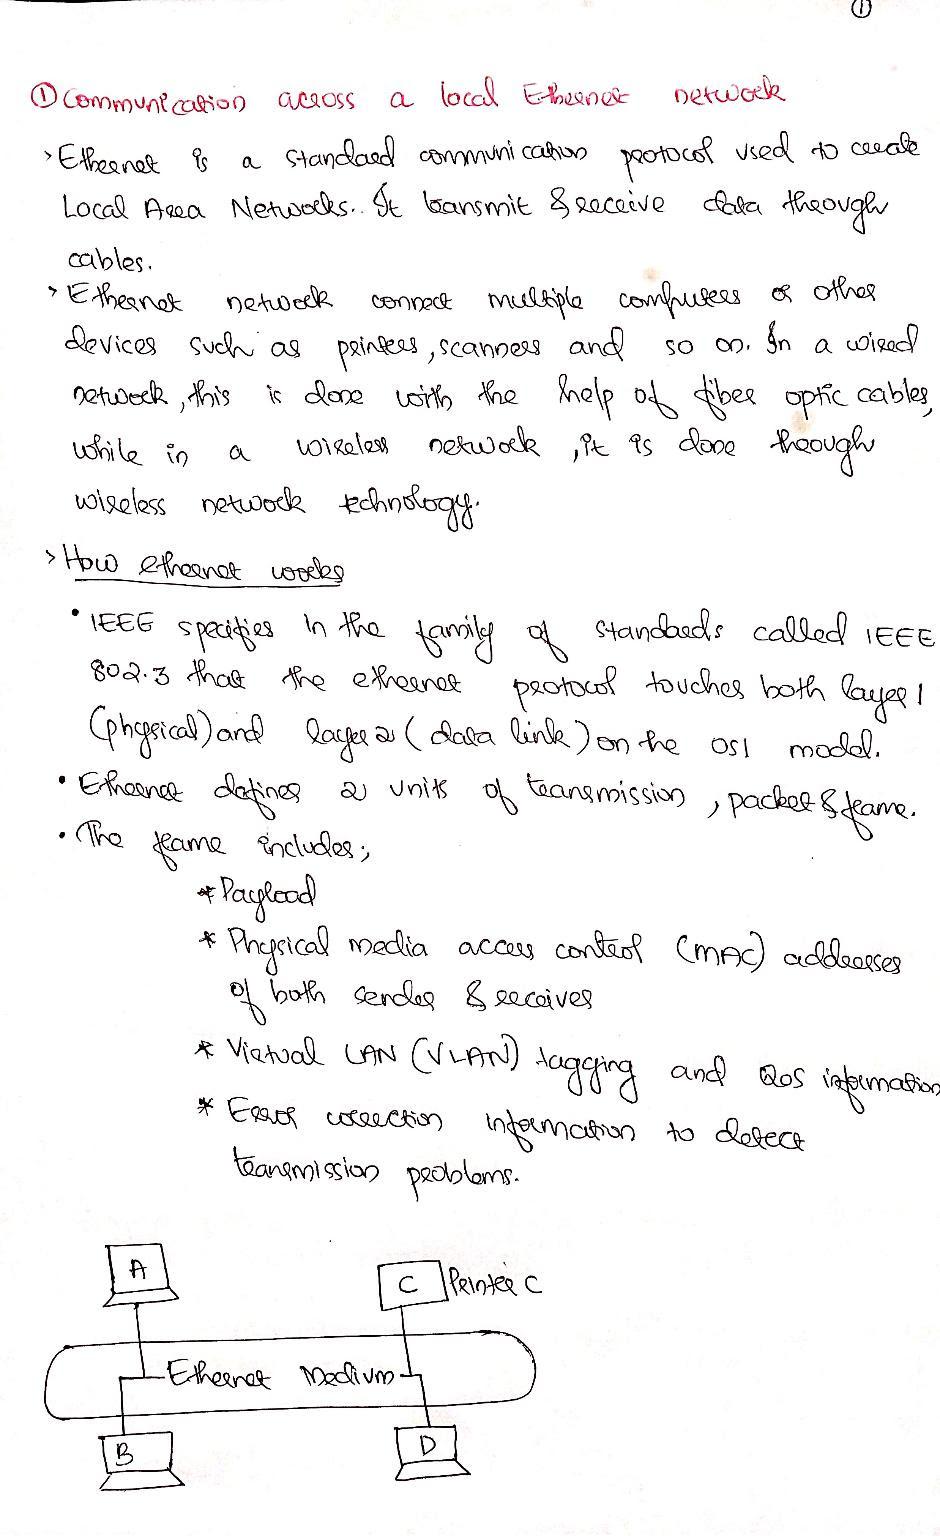 ①
① Communication across a local Ethernet network
> Ethernet is a standard communication protocol used to create
Local Area Networks. It transmit & receive data through
cables.
> Ethernet network connect multiple computers or other
devices such as printers, scanners and so on. In a wired
network, this is done with the help of fiber optic cables,
while in a wireless network, it is done through
wireless network technology.
> How ethernet works
• IEEE specifies in the family of standards called IEEE
802.3 that the ethernet protocol touches both layer 1
(physical) and layer 2 (data link) on the OSI model.
• Ethernet defines 2 units of transmission, packet & frame.
• The frame includes;
* Payload
* Physical media access control (MAC) addresses
of both sender & receiver
* Virtual LAN (VLAN) tagging and QoS information
* Error correction information to detect
transmission problems.
A
C Printer C
Ethernet Medium
B
D